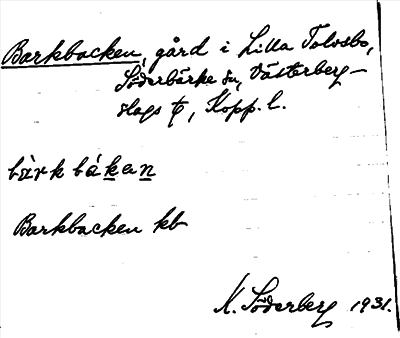 Barkbacken, gård i Lilla Tolvsbo,
Söderbärke sn, Västerberg-
slags , Kopp. l.
bàrkbákan
Barkbacken kb
K. Söderberg 1931.